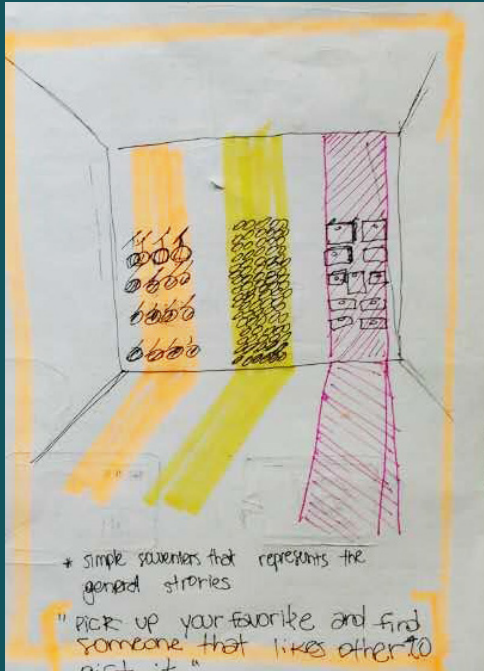 * simple souveniers that represents the
general strories
" PICK up your favorite and find
someone that likes other to
gift it "